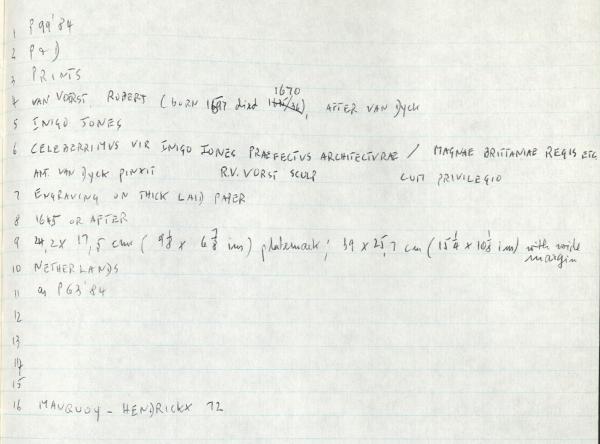 1 P99'84
2 P & D
3 PRINTS
1670
4 VAN VORST, ROBERT (born 1597 died), AFTER VAN DYCK
5 INIGO JONES
6 CELEBERRIMUS VIR INIGO JONES PRÆFECTUS ARCHITECTURÆ / MAGNAE BRITTANIAE REGIS ETC.
ANT. VAN DYCK PINXIT R.V. VORST SCULP CUM PRIVILEGIO
7 ENGRAVING ON THICK LAID PAPER
8 1645 OR AFTER
9 24,2 X 17,5 cm ( 9 1/2 x 6 7/8 ins) platemark; 39 x 25,7 cm (15 1/4 x 10 1/8 ins) with wide
margin
10 NETHERLANDS
11 as P63'84
12
13
14
15
16 MAUQUOY - HENDRICKX 72